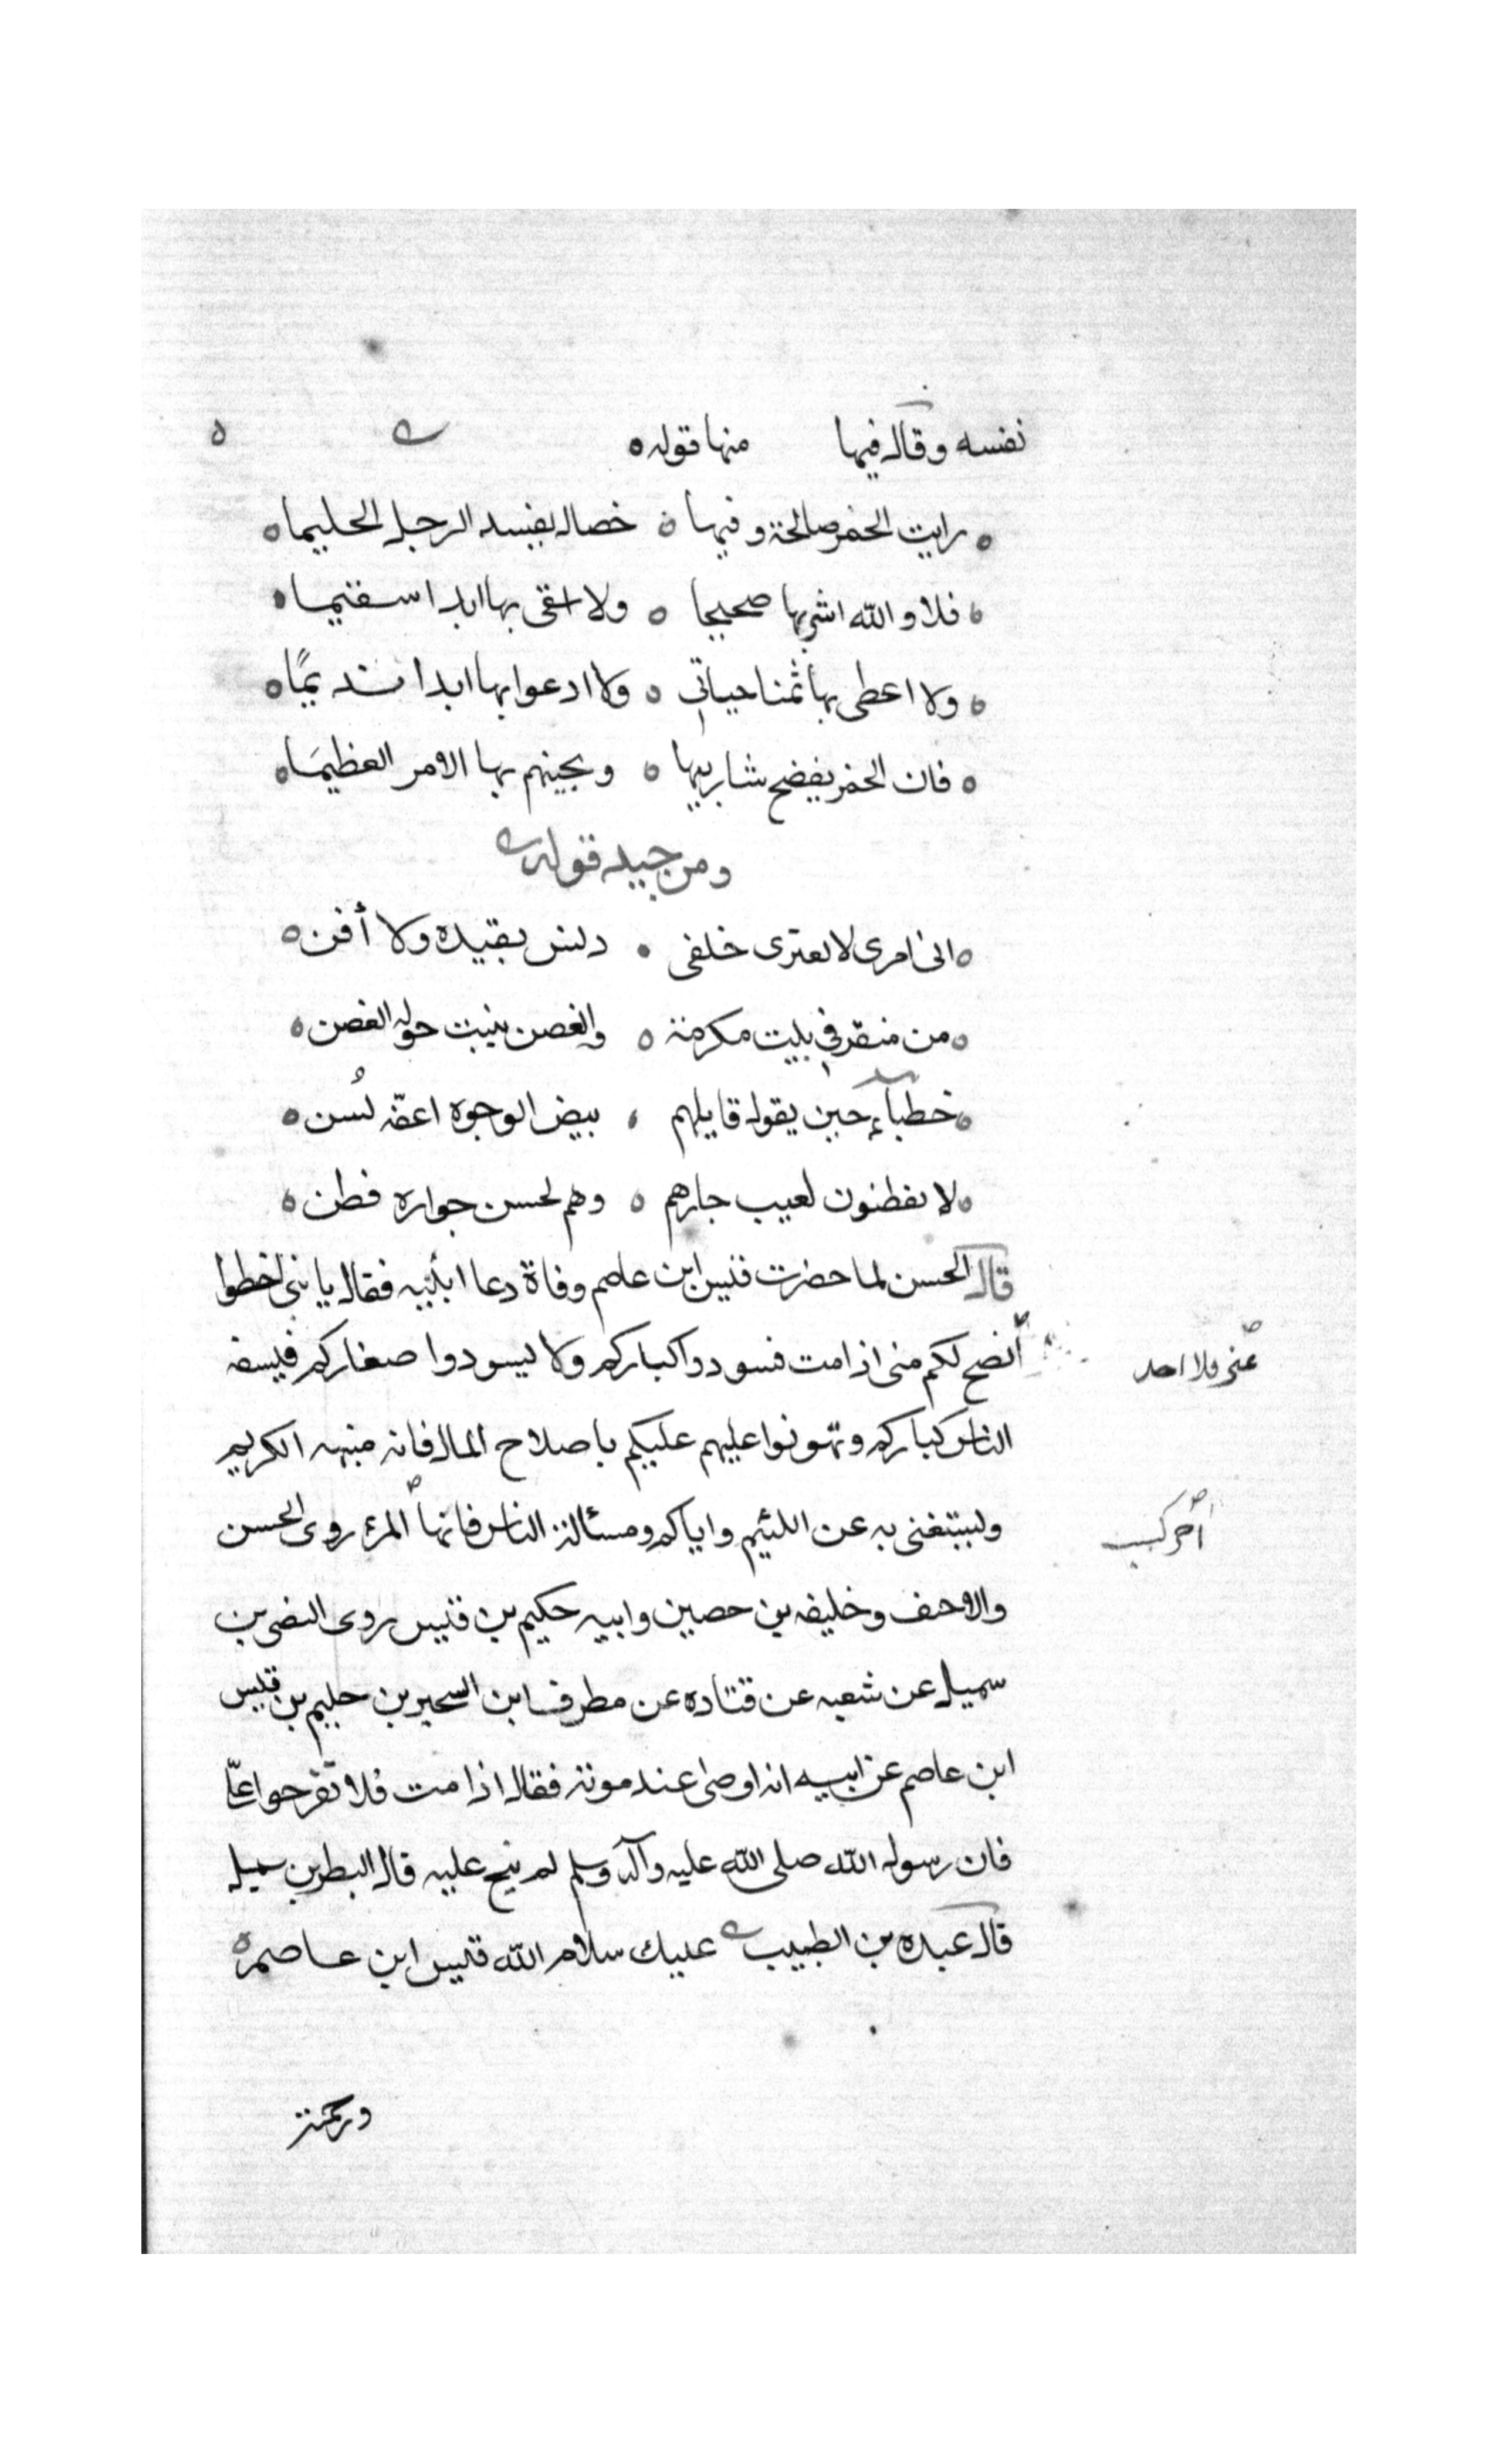 نفسه وقال فيها منها قوله
رايت الخمر صالحة وفيها خصال يفسد الرجل الحليما
فلا والله اشربها صحيحا ولا اسقى بها ابدا سقيما
ولا اعطى بها ثمنا حياتي ولا ادعوا بها ابدا نديمًا
فان الخمر يفضح شاربيها ويجنيهم بها الامر العظيمَا
ومن جيد قوله
انى امرى لا يعترى خلقى دلنس يقيده ولا أفن
من منقر في بيت مكرمة والغصن ينبت حوله الغصن
خطبآء حين يقول قايلهم بيض الوجوه اعفّه لُسُن
لا يفطنون لعيب جارهم وهم لحسن جواره فطن
قال الحسن لما حضرت قيس ابن عاصم وفاة دعا ابنيه فقال يا بنى احفظوا
عنى فلا احد
أنصح لكم منى اذا مت فسودوا كباركم ولا ليسودوا صغاركم فيسفه
الناس كباركم وتهونوا عليهم عليكم باصلاح المال فانه منبهه الكريم
أخر كسب
وليستغنى به عن اللئيم واياكم ومسئالة الناس فانها المرء روى الحسن
والاحنف وخليفه بن حصين وابيه حكيم بن قيس روى النضر بن
سميل عن شعبه عن قتاده عن مطرف ابن السحير بن حليم بن قيس
ابن عاصم عن ابيه انه اوصى عند موته فقال اذا مت فلا
فان رسول الله صلى الله عليه وآله وسلم لم ينح عليه قال بن سميل
قال عبده بن الطبيب عليك سلام الله قيس ابن عاصم
ورحمته